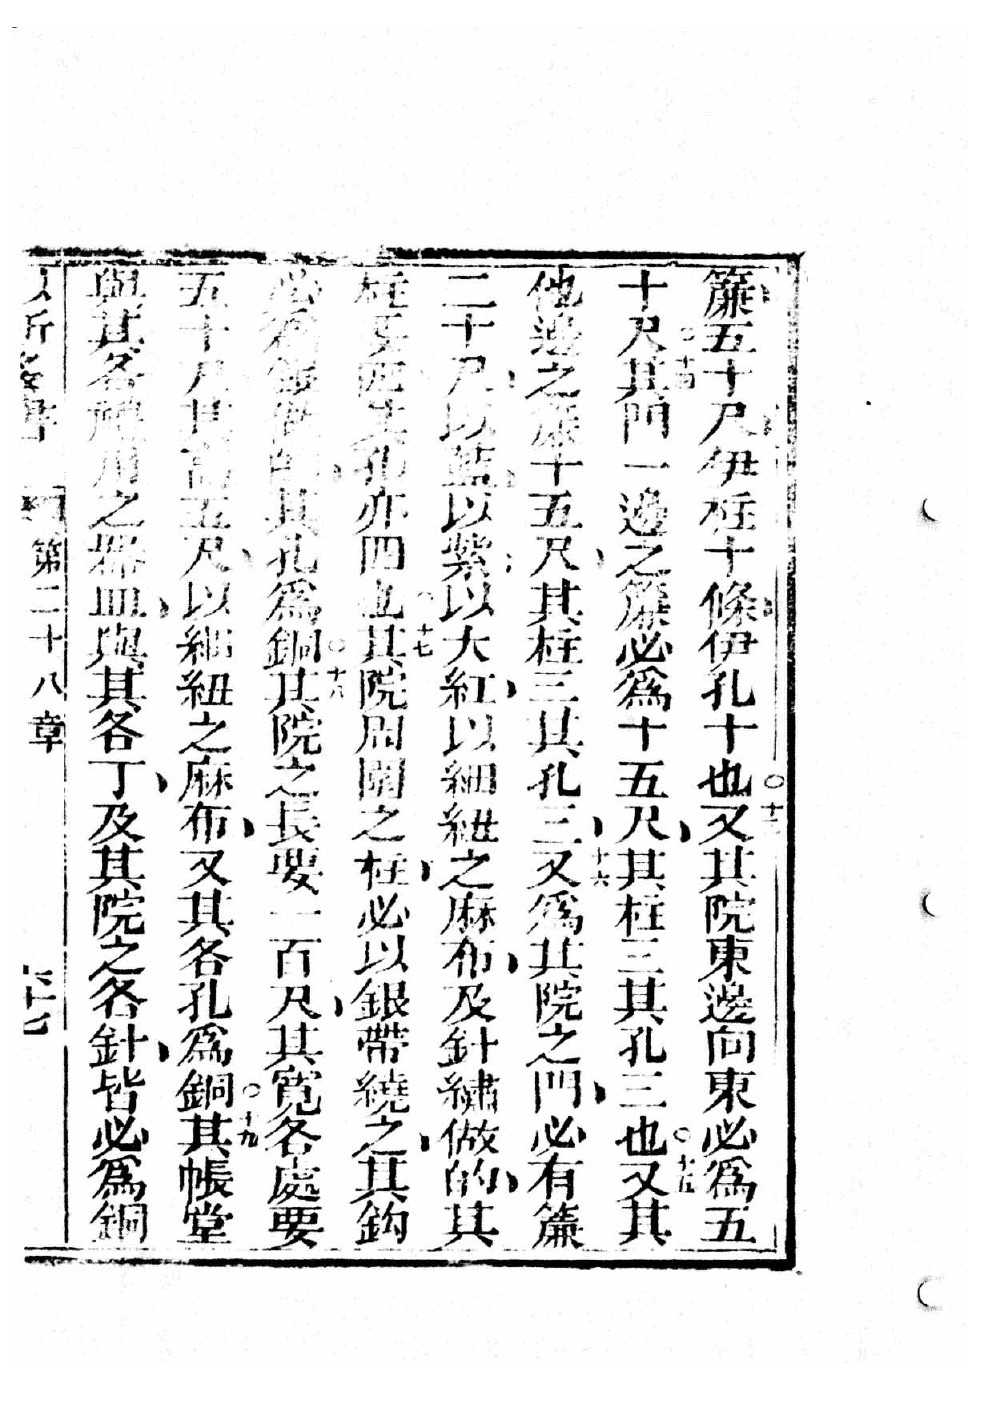 簾五十尺伊柱十條伊孔十也○十三又其院東邊向東必為五
十尺○十四其門一邊之簾必為十五尺其柱三其孔三也○十五又其
他邊之簾十五尺其柱三其孔三○十六又為其院之門必有簾
二十尺以藍以紫以大紅以細紐之麻布及針繡做的其
柱為四其孔亦四也○十七其院周圍之柱必以銀帶繞之其鈎
必為銀做的其孔為銅○十八其院之長要一百尺其寬各處要
五十尺其高五尺以細紐之麻布又其各孔為銅○十九其帳堂
與其各禮用之器皿與其各丁及其院之各針皆必為銅
第二十八章